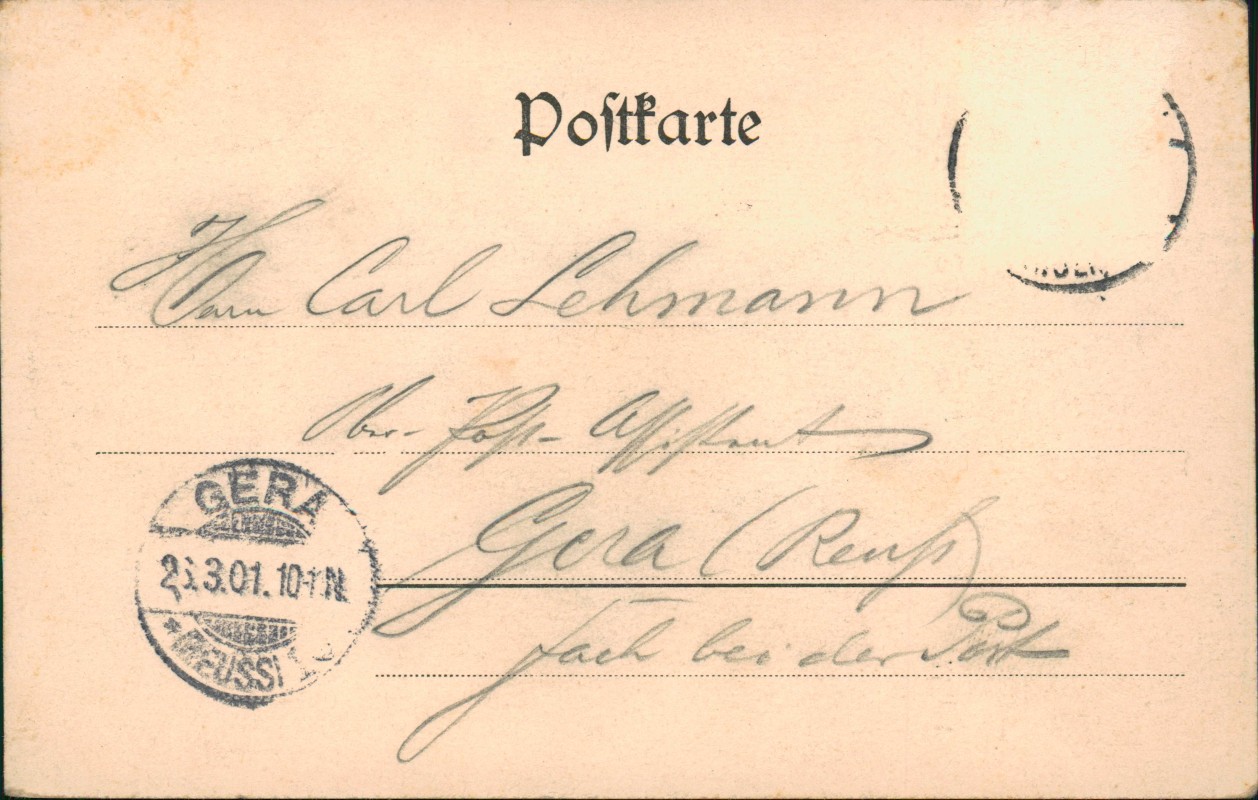 Postkarte
Herrn Carl Lehmann
Ober-Post-Assistent
Gera (Reuß)
Fach bei der Post
GERA
3.01. 10-11 N.
* (REUSS) 1